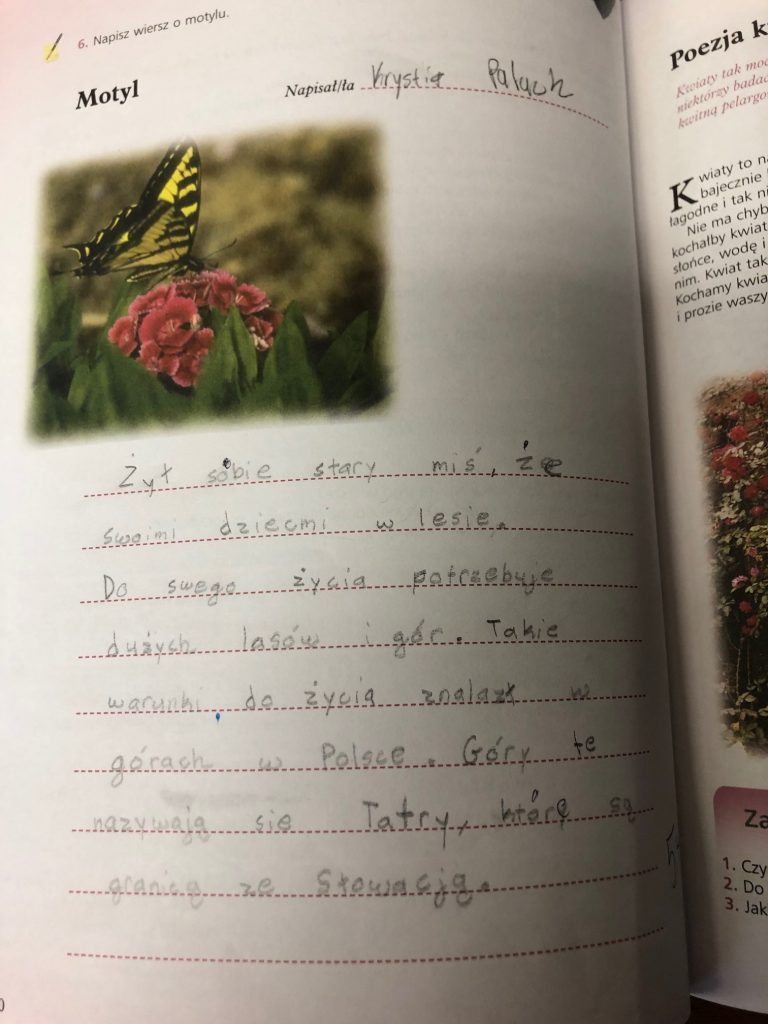 6. Napisz wiersz o motylu.
Motyl
Napisał/ła Krystia Paluch
Żył sobie stary miś, że
swoimi dziećmi w lesie.
Do swego życia potrzebuje
dużych lasów i gór. Takie
warunki do życia znalazł w
górach w Polsce. Góry te
nazywają sie Tatry, które są
granicą ze Słowacją.
5
Poezja k
Kwiaty tak moc
niektórzy badac
kwitną pelargo
Kwiaty to n
bajecznie
łagodne i tak ni
Nie ma chyb
kochałby kwiat
słońce, wodę i
nim. Kwiat tak
Kochamy kwia
i prozie waszy
Za
1. Czy
2. Do
3. Jak
0